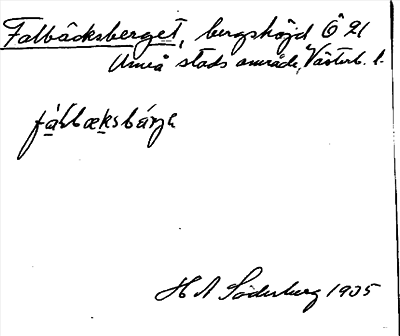 Falbäcksberget, bergshöjd Ö 21
Umeå stads område, Västerb. l.
fálbæksbárje
H A Söderberg 1935